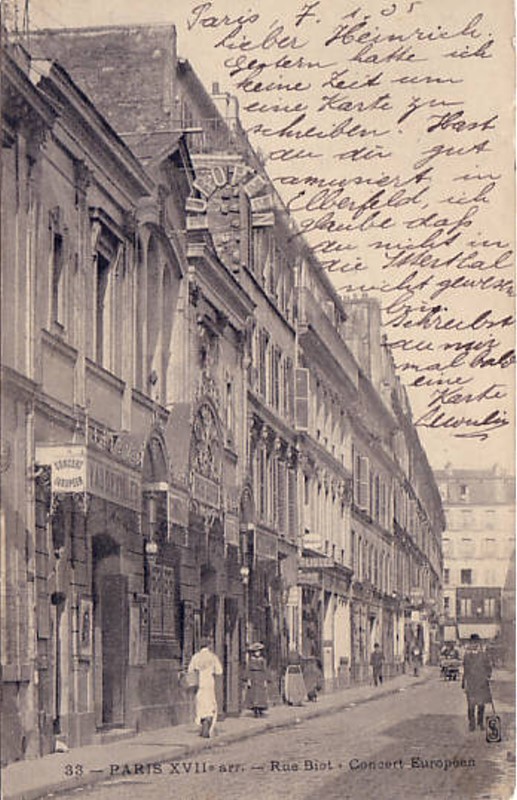 Paris, 7. 1. 05
Lieber Heinrich.
Gestern hatte ich
keine Zeit um
eine Karte zu
schreiben. Hast
du dir gut
amusiert in
Elberfeld, ich
glaube daß
du nicht in
die
nicht gewesen
bist.
Schreibst
du mir
mal bald
eine
Karte
CONCERT
EUROPÉEN
33 — PARIS XVIIe arr. — Rue Biot - Concert Européen